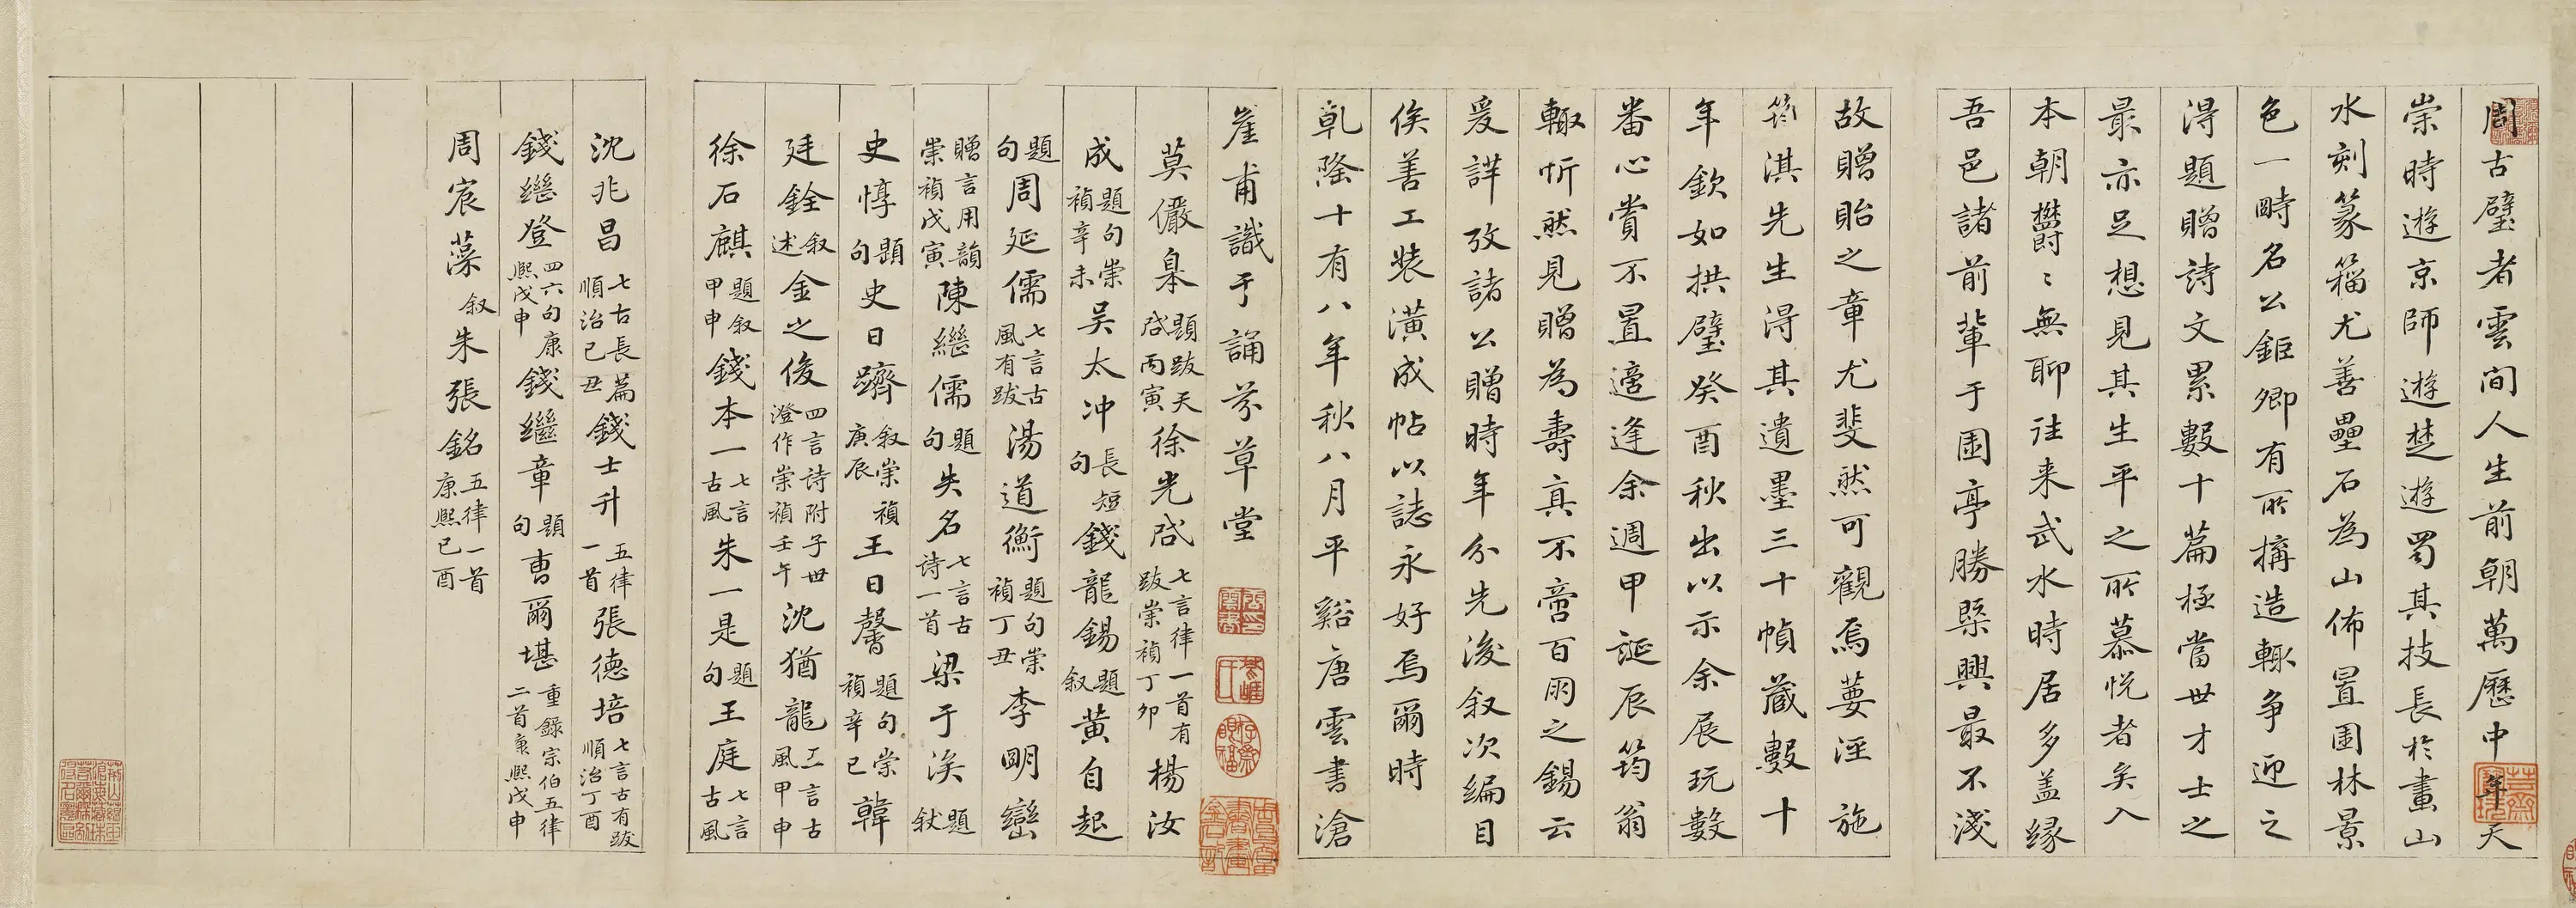 周古璧者雲間人生前朝萬厯中年天
崇時遊京師遊楚遊蜀其技長於畫山
水刻篆籀尤善壘石為山佈置園林景
色一時名公鉅卿有所搆造輙争迎之
得題贈詩文累數十篇極當世才士之
最亦足想見其生平之所慕悦者矣入
本朝欝〻無聊往来武水時居多盖緣
吾邑諸前輩于園亭勝槩興最不淺
故贈貽之章尤斐然可觀焉蔞涇施
筠淇先生得其遺墨三十幀藏數十
年欽如拱璧癸酉秋出以示余展玩數
番心賞不置適逢余週甲誕辰筠翁
輙忻然見贈為壽真不啻百朋之錫云
爰詳攷諸公贈時年分先後叙次編目
俟善工裝潢成帖以誌永好焉爾時
乾隆十有八年秋八月平谿唐雲書滄
崖甫識于誦芬草堂
莫儼皋 題跋天啟丙寅 徐光啟 七言律一首有跋崇禎丁卯 楊汝
成 題句崇禎辛未 吴太冲 長短句 錢龍錫 題叙 黄自起
題句 周延儒 七言古風有跋 湯道衡 題句崇禎丁丑 李明巒
贈言用韻崇禎戊寅 陳繼儒 題句 失名 七言古詩一首 梁于涘 題狀
史惇 題句 史日躋 叙崇禎庚辰 王日馨 題句崇禎辛巳 韓
廷銓 叙述 金之俊 四言詩附子世澄作崇禎壬午 沈猶龍 五言古風甲申
徐石麒 題叙甲申 錢本一 七言古風 朱一是 題句 王庭 七言古風
沈兆昌 七古長篇順治己丑 錢士升 五律一首 張德培 七言古有跋順治丁酉
錢繼登 四六句康熙戊申 錢繼章 題句 曹爾堪 重錄宗伯五律二首康熙戊申
周宸藻 叙 朱張銘 五律一首康熙己酉